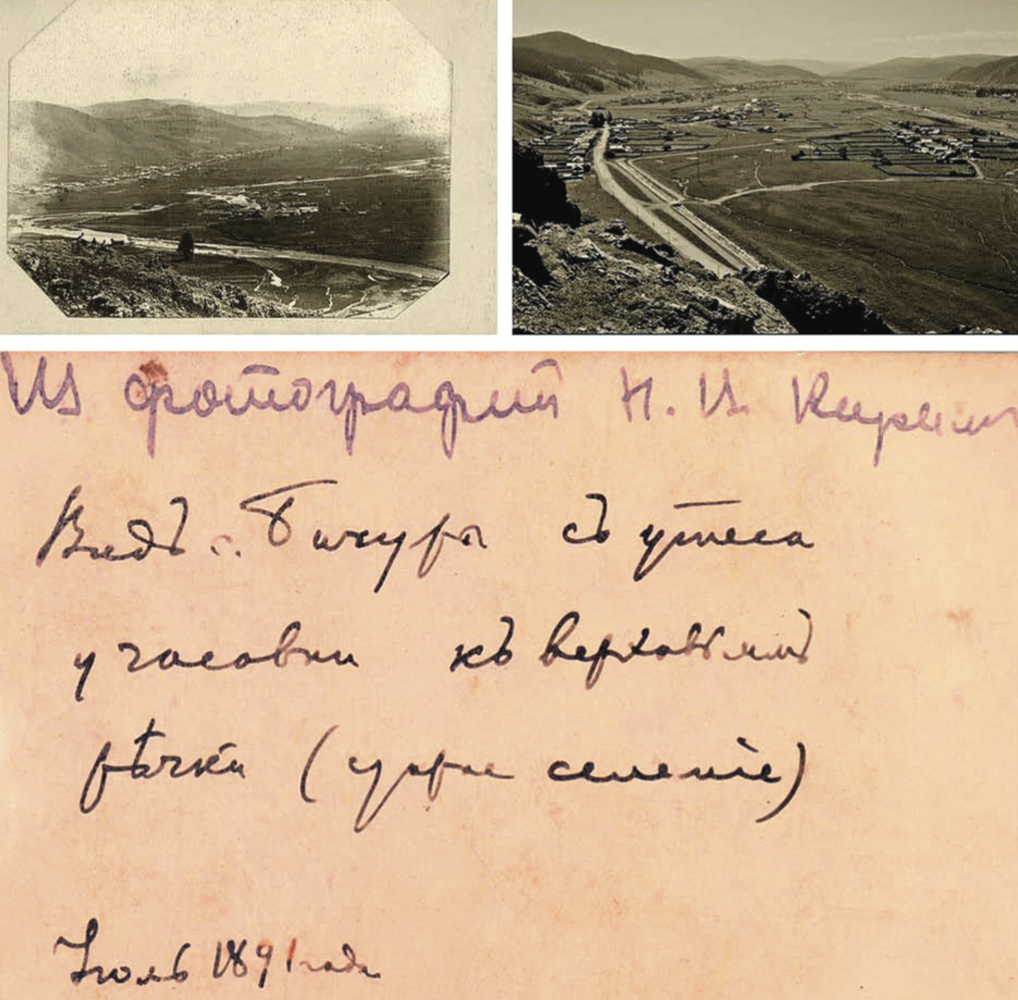 Из фотографий Н. В. Кирил
Видъ с. Бичуры съ утеса
у часовни къ верховьямъ
рѣчки ( селеніе)
Іюль 1891 года